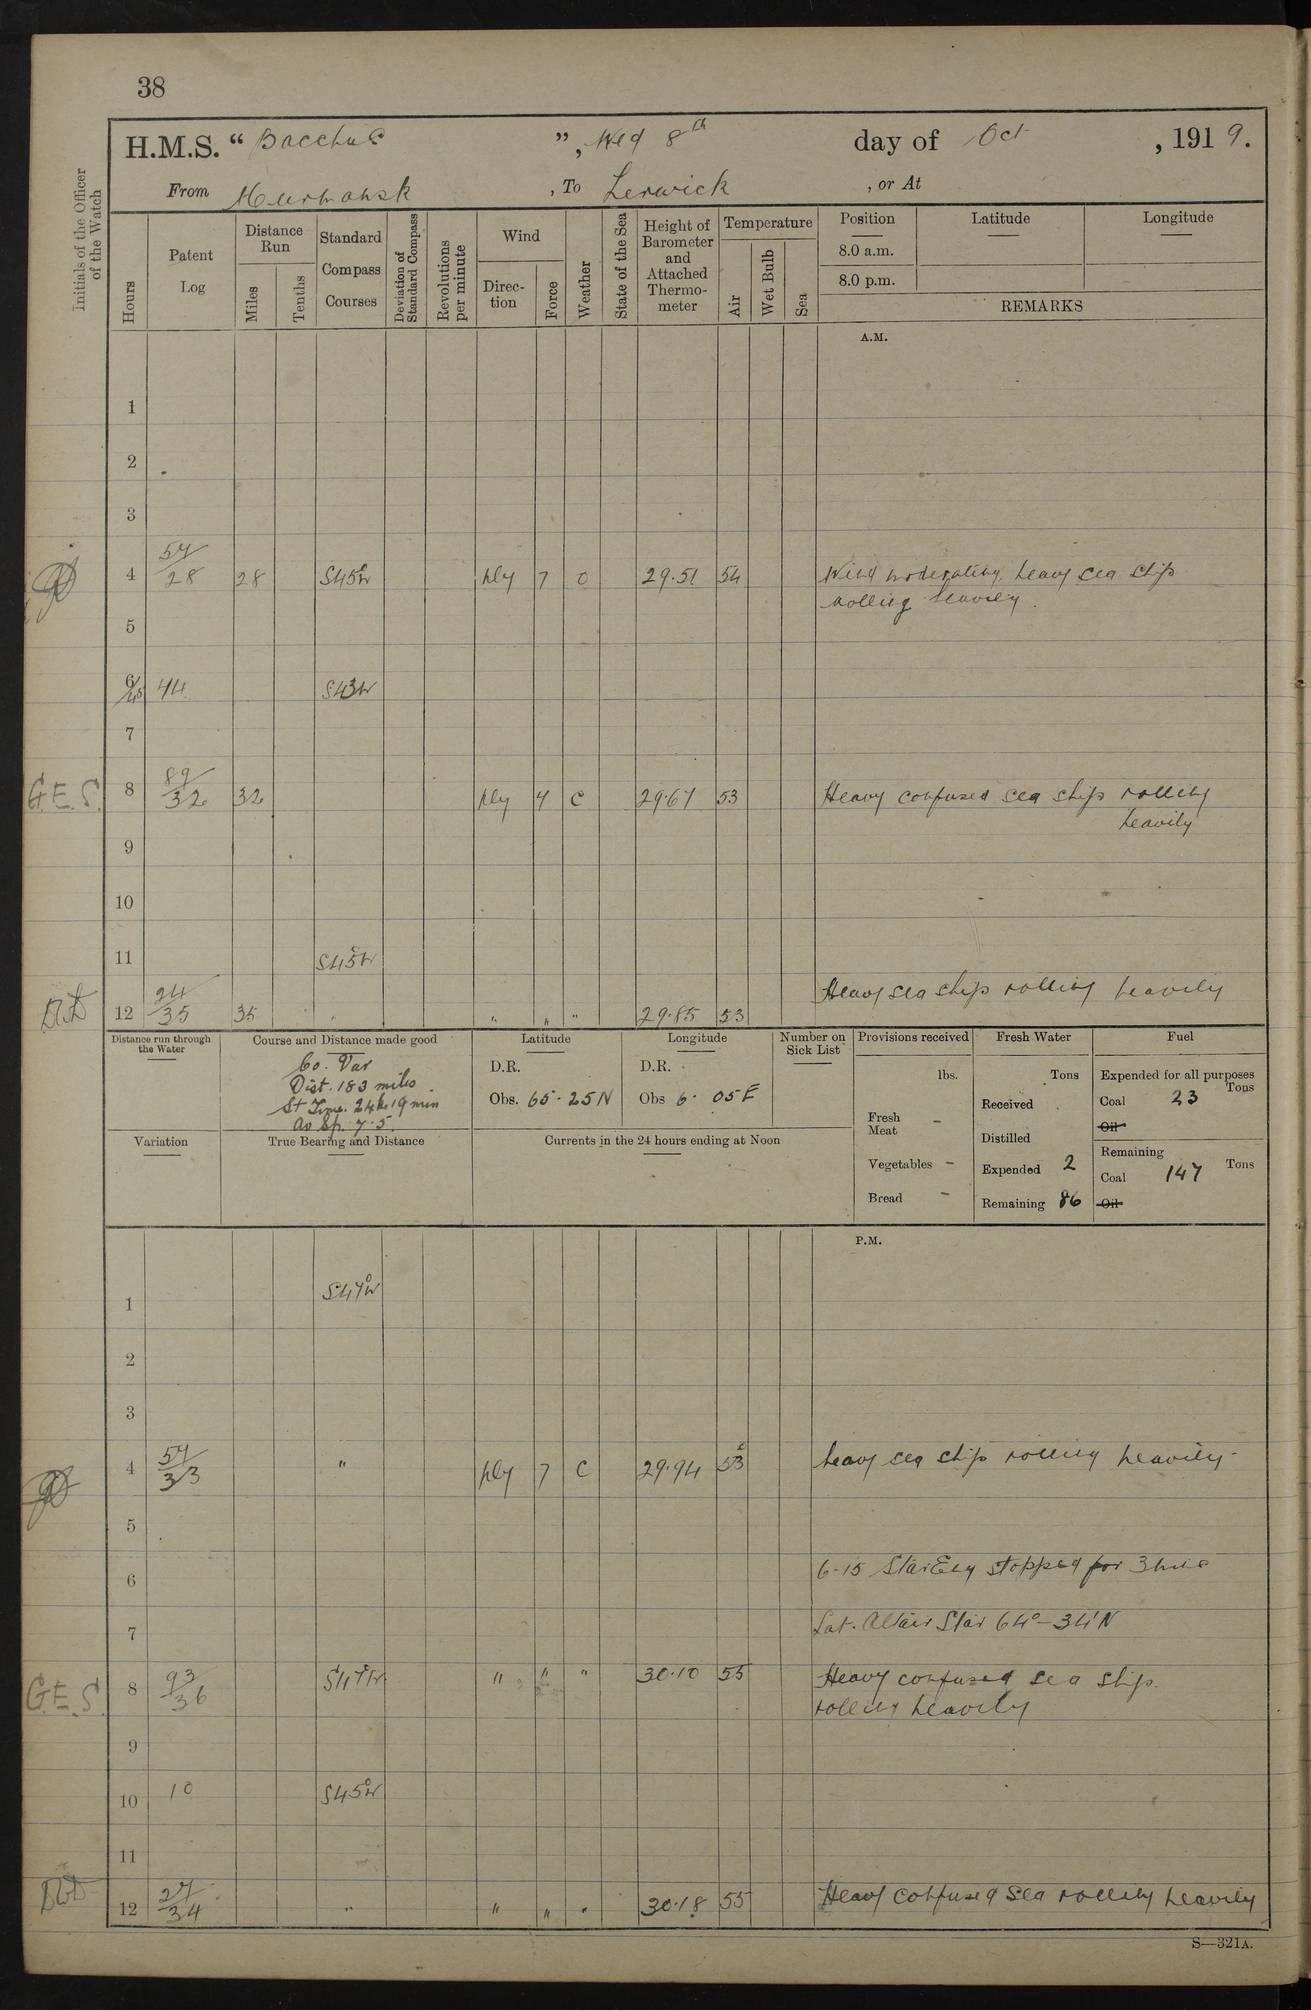 38
H.M.S. “ Bacchus ”, Wed 8th day of Oct , 1919.
From Murmansk , To Lerwick , or At
Initials of the Officer of the Watch
Hours
Patent Log
Distance Run
Miles
Tenths
Standard Compass Courses
Deviation of Standard Compass
Revolutions per minute
Wind
Direction
Force
Weather
State of the Sea
Height of Barometer and Attached Thermometer
Temperature
Air
Wet Bulb
Sea
Position Latitude Longitude
8.0 a.m.
8.0 p.m.
REMARKS
A.M.
1
2
3
57
4 28 28 S45°W Nly 7 O 29.51 54 Wind moderating, heavy sea ship
rolling heavily.
5
6/45 44 S43W
7
89
G.E.S. 8 32 32 Nly 7 C 29.67 53 Heavy confused sea ship rolling
heavily
9
10
11 S45°W
24 Heavy sea ship rolling heavily
12 35 35 " " " " 29.85 53
Distance run through the Water
Course and Distance made good
Co. Var
Dist. 183 miles.
St Time. 24h 19 min
av Sp. 7.5.
Latitude
D.R.
Obs. 65.25N
Longitude
D.R.
Obs 6. 05E
Number on Sick List
Provisions received
lbs.
Fresh Meat –
Vegetables –
Bread –
Fresh Water
Tons
Received
Distilled
Expended 2
Remaining 86
Fuel
Expended for all purposes
Tons
Coal 23
Oil
Remaining
Tons
Coal 147
Oil
Variation
True Bearing and Distance
Currents in the 24 hours ending at Noon
P.M.
1 S47°W
2
3
57
4 33 " Nly 7 C 29.94 53 heavy sea ship rolling heavily.
5
6 6.15 Star Eng stopped for 3 mins
7 Lat. Altair Star 64°–34'N
93
G.E.S. 8 36 S47°W " " " 30.10 55 Heavy confused sea ship.
rolling heavily
9
10 10 S45°W
11
27
12 34 " " " " 30.18 55 Heavy confused sea rolling heavily
S—321A.